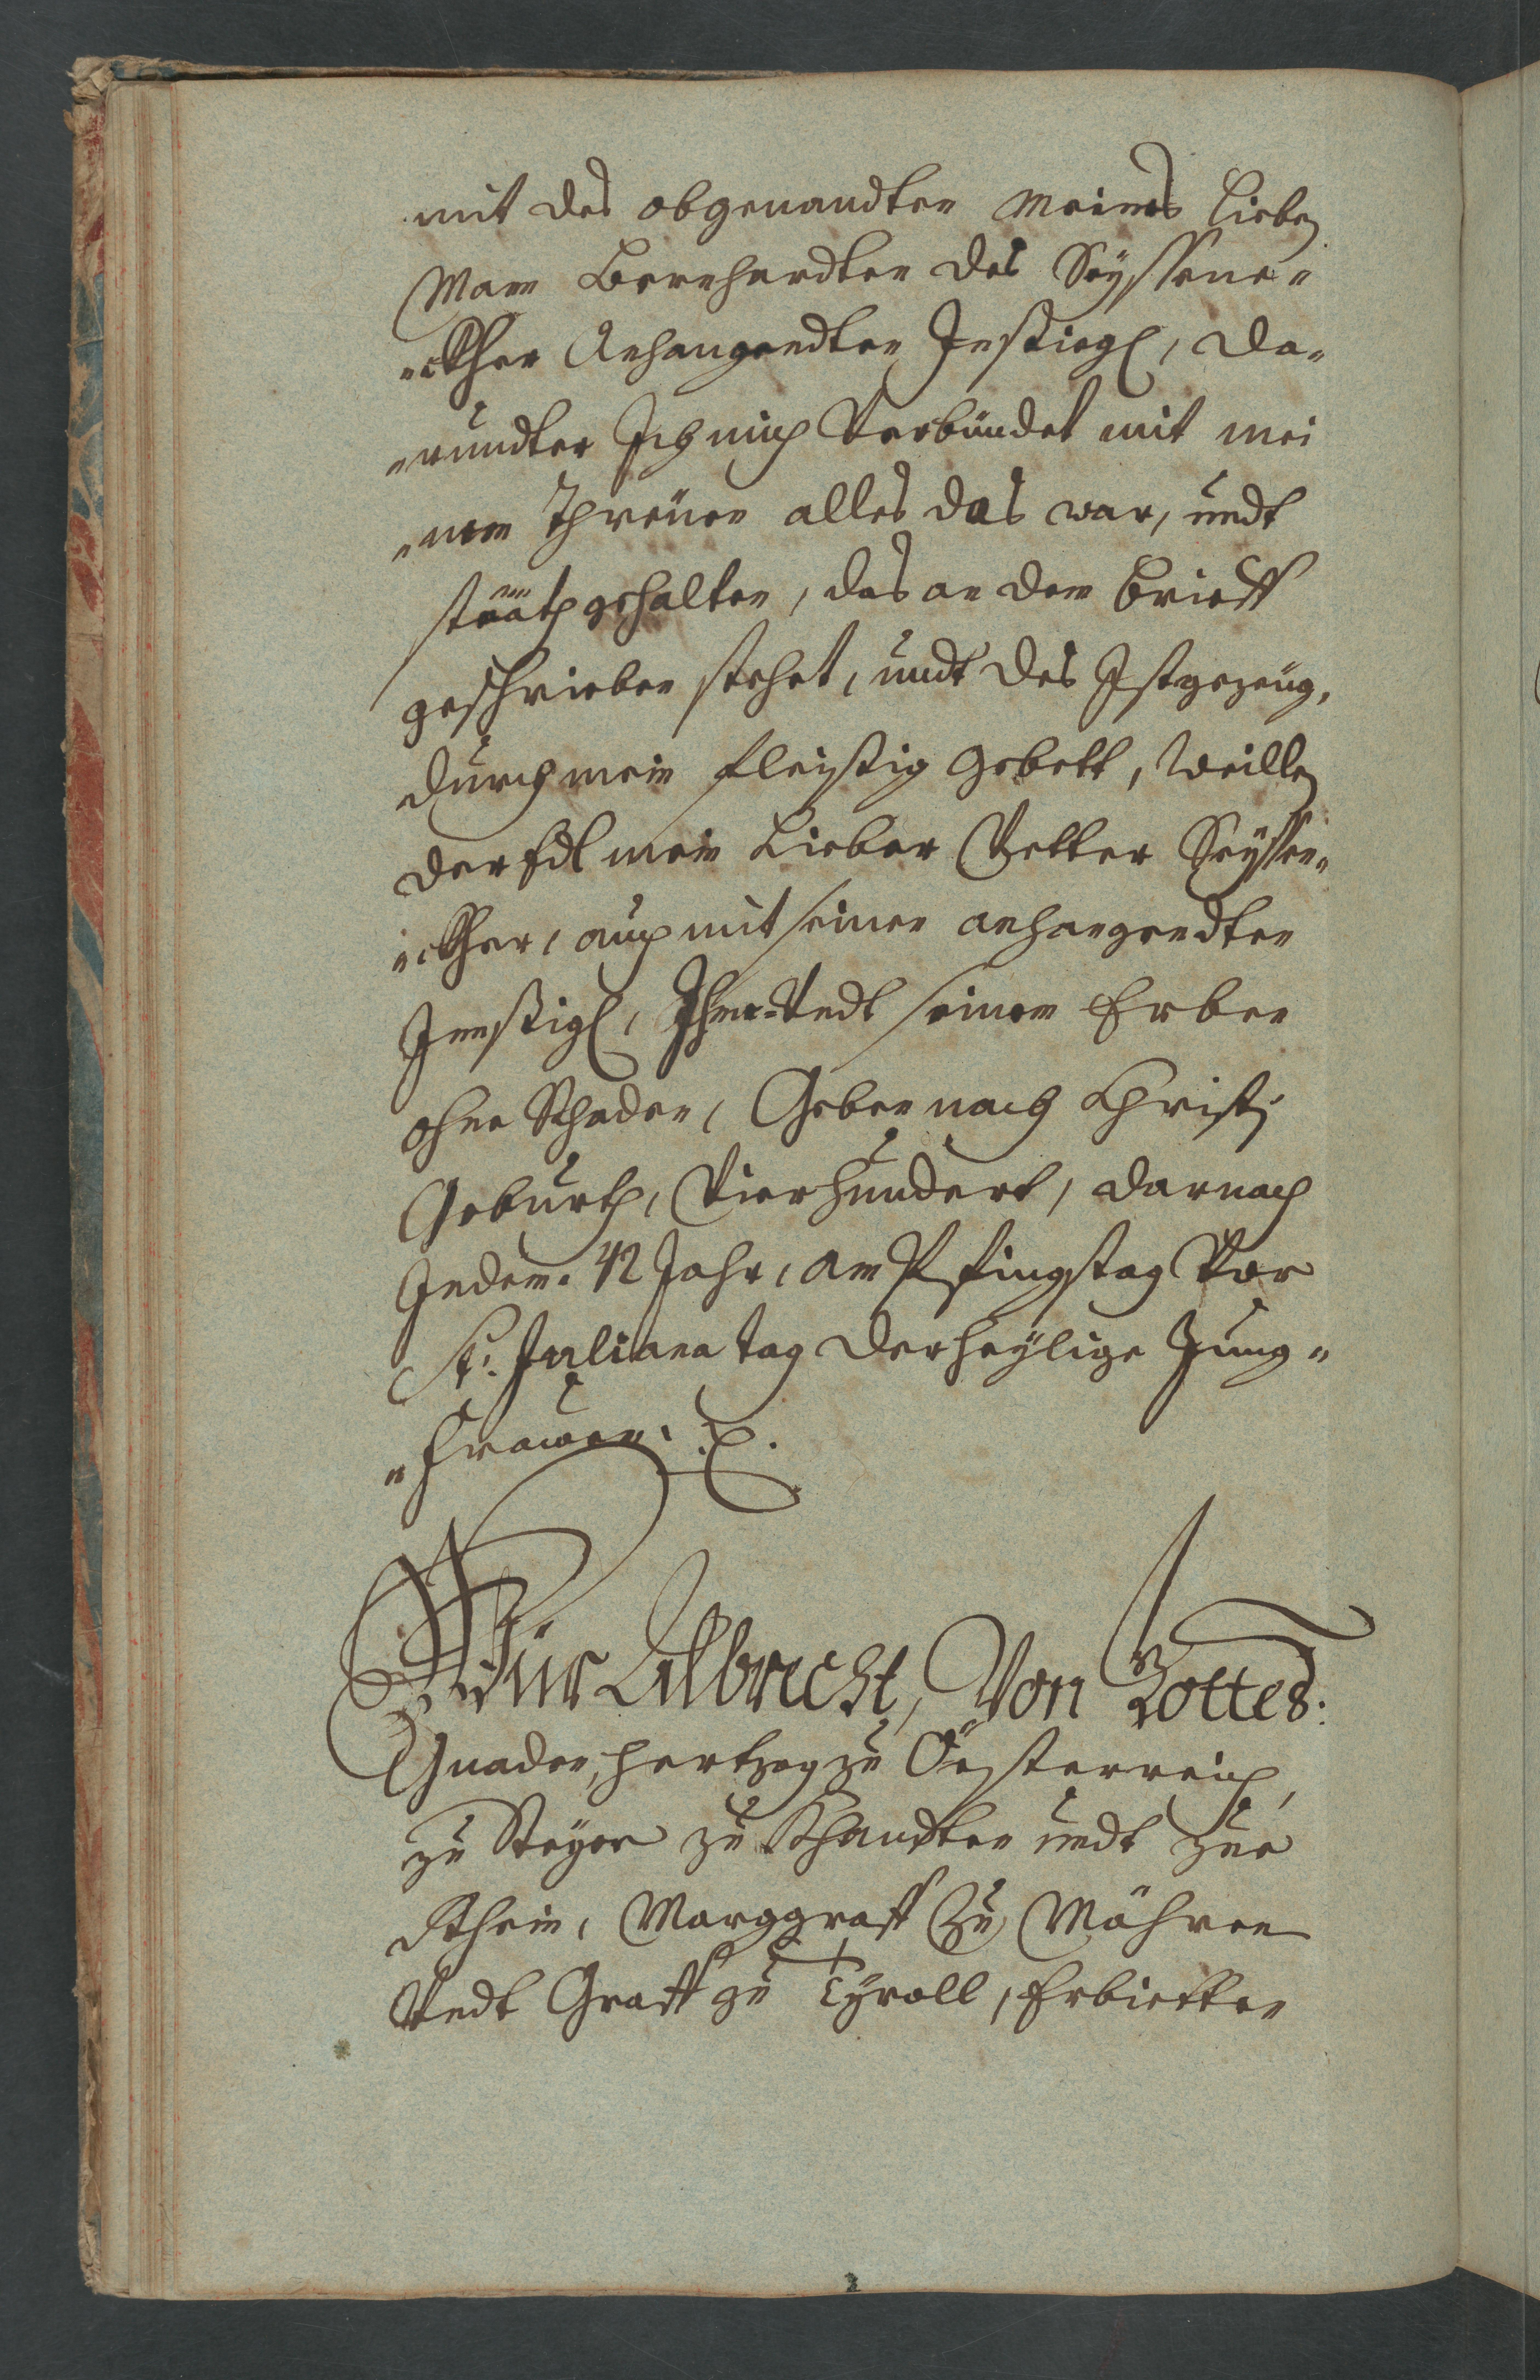 mit des obgenandten Meines Lieben
Mann Bernhardten des Seyssene„
„ckher Anhangendten Insiegl, da„
„rundter Ich mich Verbündet mit mei
„nen Threüen alles das war, undt
stääth gehalten, das an dem brieff
geschrieben stehet, undt des Istgezeug,
durch mein fleissig gebett, Weillen
der Edl mein Lieber Vetter Seyssen„
„ckher, auch mit seinen anhangendten
Innsigl, Ihme Undt seinen Erben
ohne Schaden, Geben nach Christi
Geburth, Vierhundert, darnach
Indem. 42 Jahr, am Pfingstag Vor
St: Juliana tag der heylige Jung„
„frawen.
Wür Albrecht, Von Gottes:
Gnaden, hertzog zu Öesterreich,
zu Steyer zu Khärndten undt zue
Khrein, Marggraff Zu Mähren
Undt Graff zu Tyroll, Erbietten